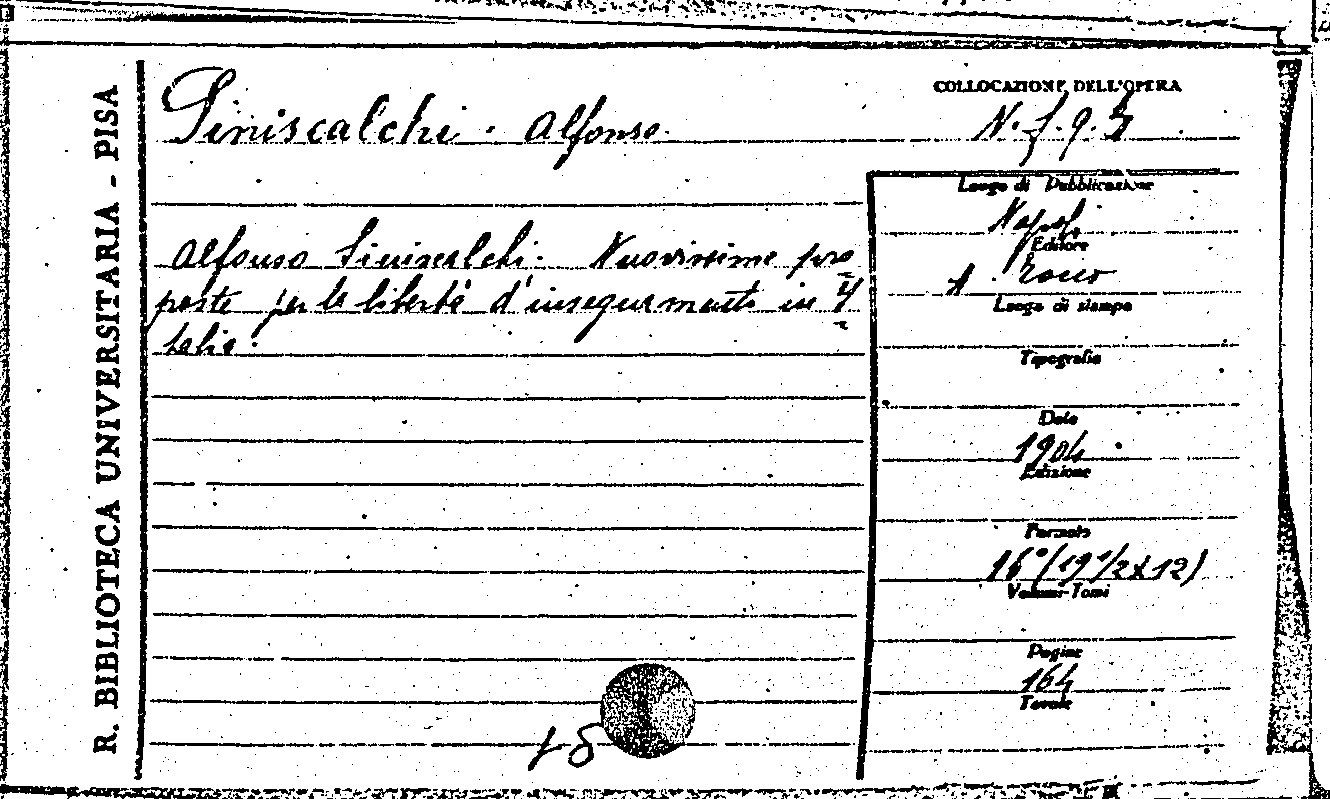 R. BIBLIOTECA UNIVERSITARIA - PISA
Siniscalchi · Alfonso
COLLOCAZIONE DELL'OPERA
N. f. 9. 5
Alfonso Siniscalchi. Nuovissime pro
poste per la libertà d'insegnamento in I
talia.
Luogo di Pubblicazione
Napoli
Editore
A. Rocco
Luogo di stampa
Tipografia
Data
1904
Edizione
Formato
16° (19 1/2 x 12)
Volumi-Tomi
Pagine
164
Tavole